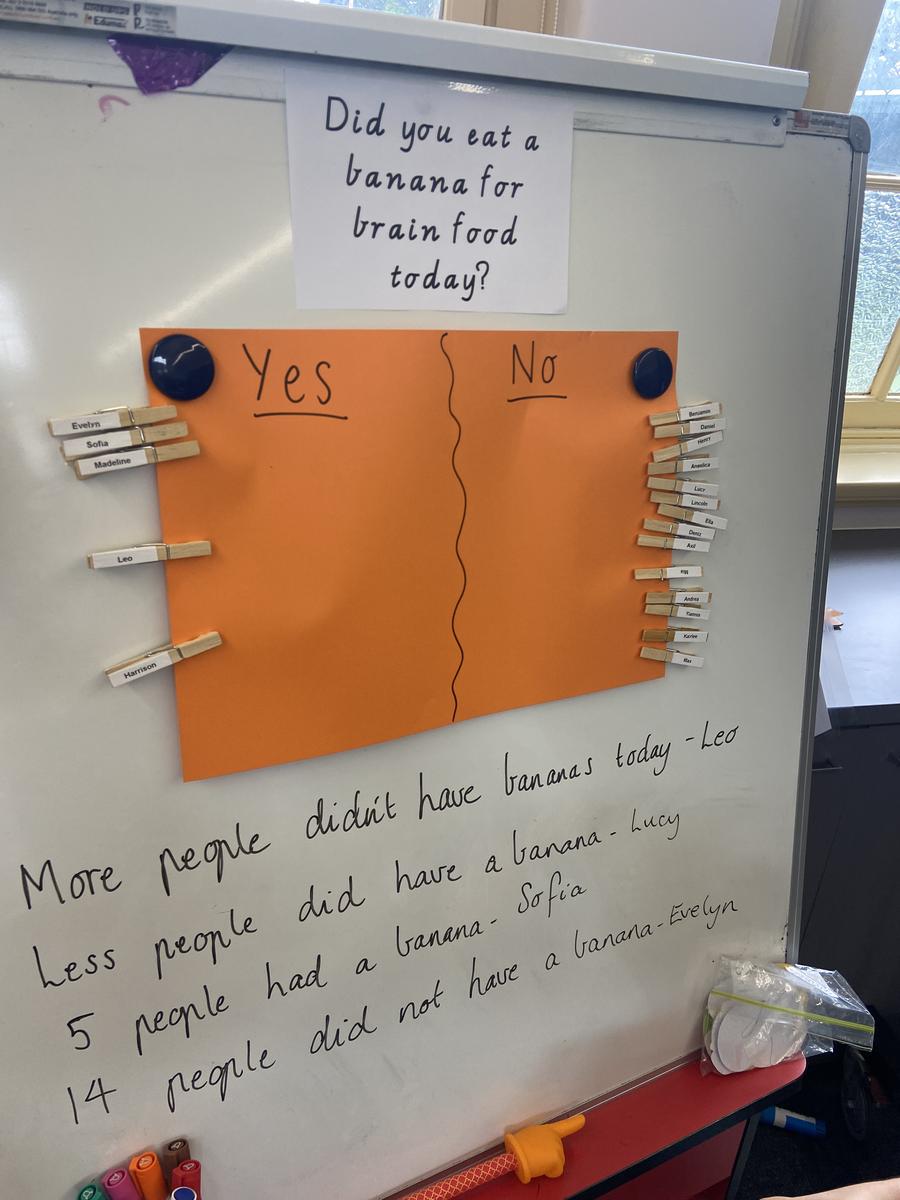 Did you eat a
banana for
brain food
today?
Yes
No
Evelyn
Sofia
Madeline
Leo
Harrison
Benjamin
Daniel
Henry
Angelica
Lucy
Lincoln
Ella
Deniz
Axil
Andrea
Max
More people didn't have bananas today - Leo
Less people did have a banana - Lucy
5 people had a banana - Sofia
14 people did not have a banana - Evelyn